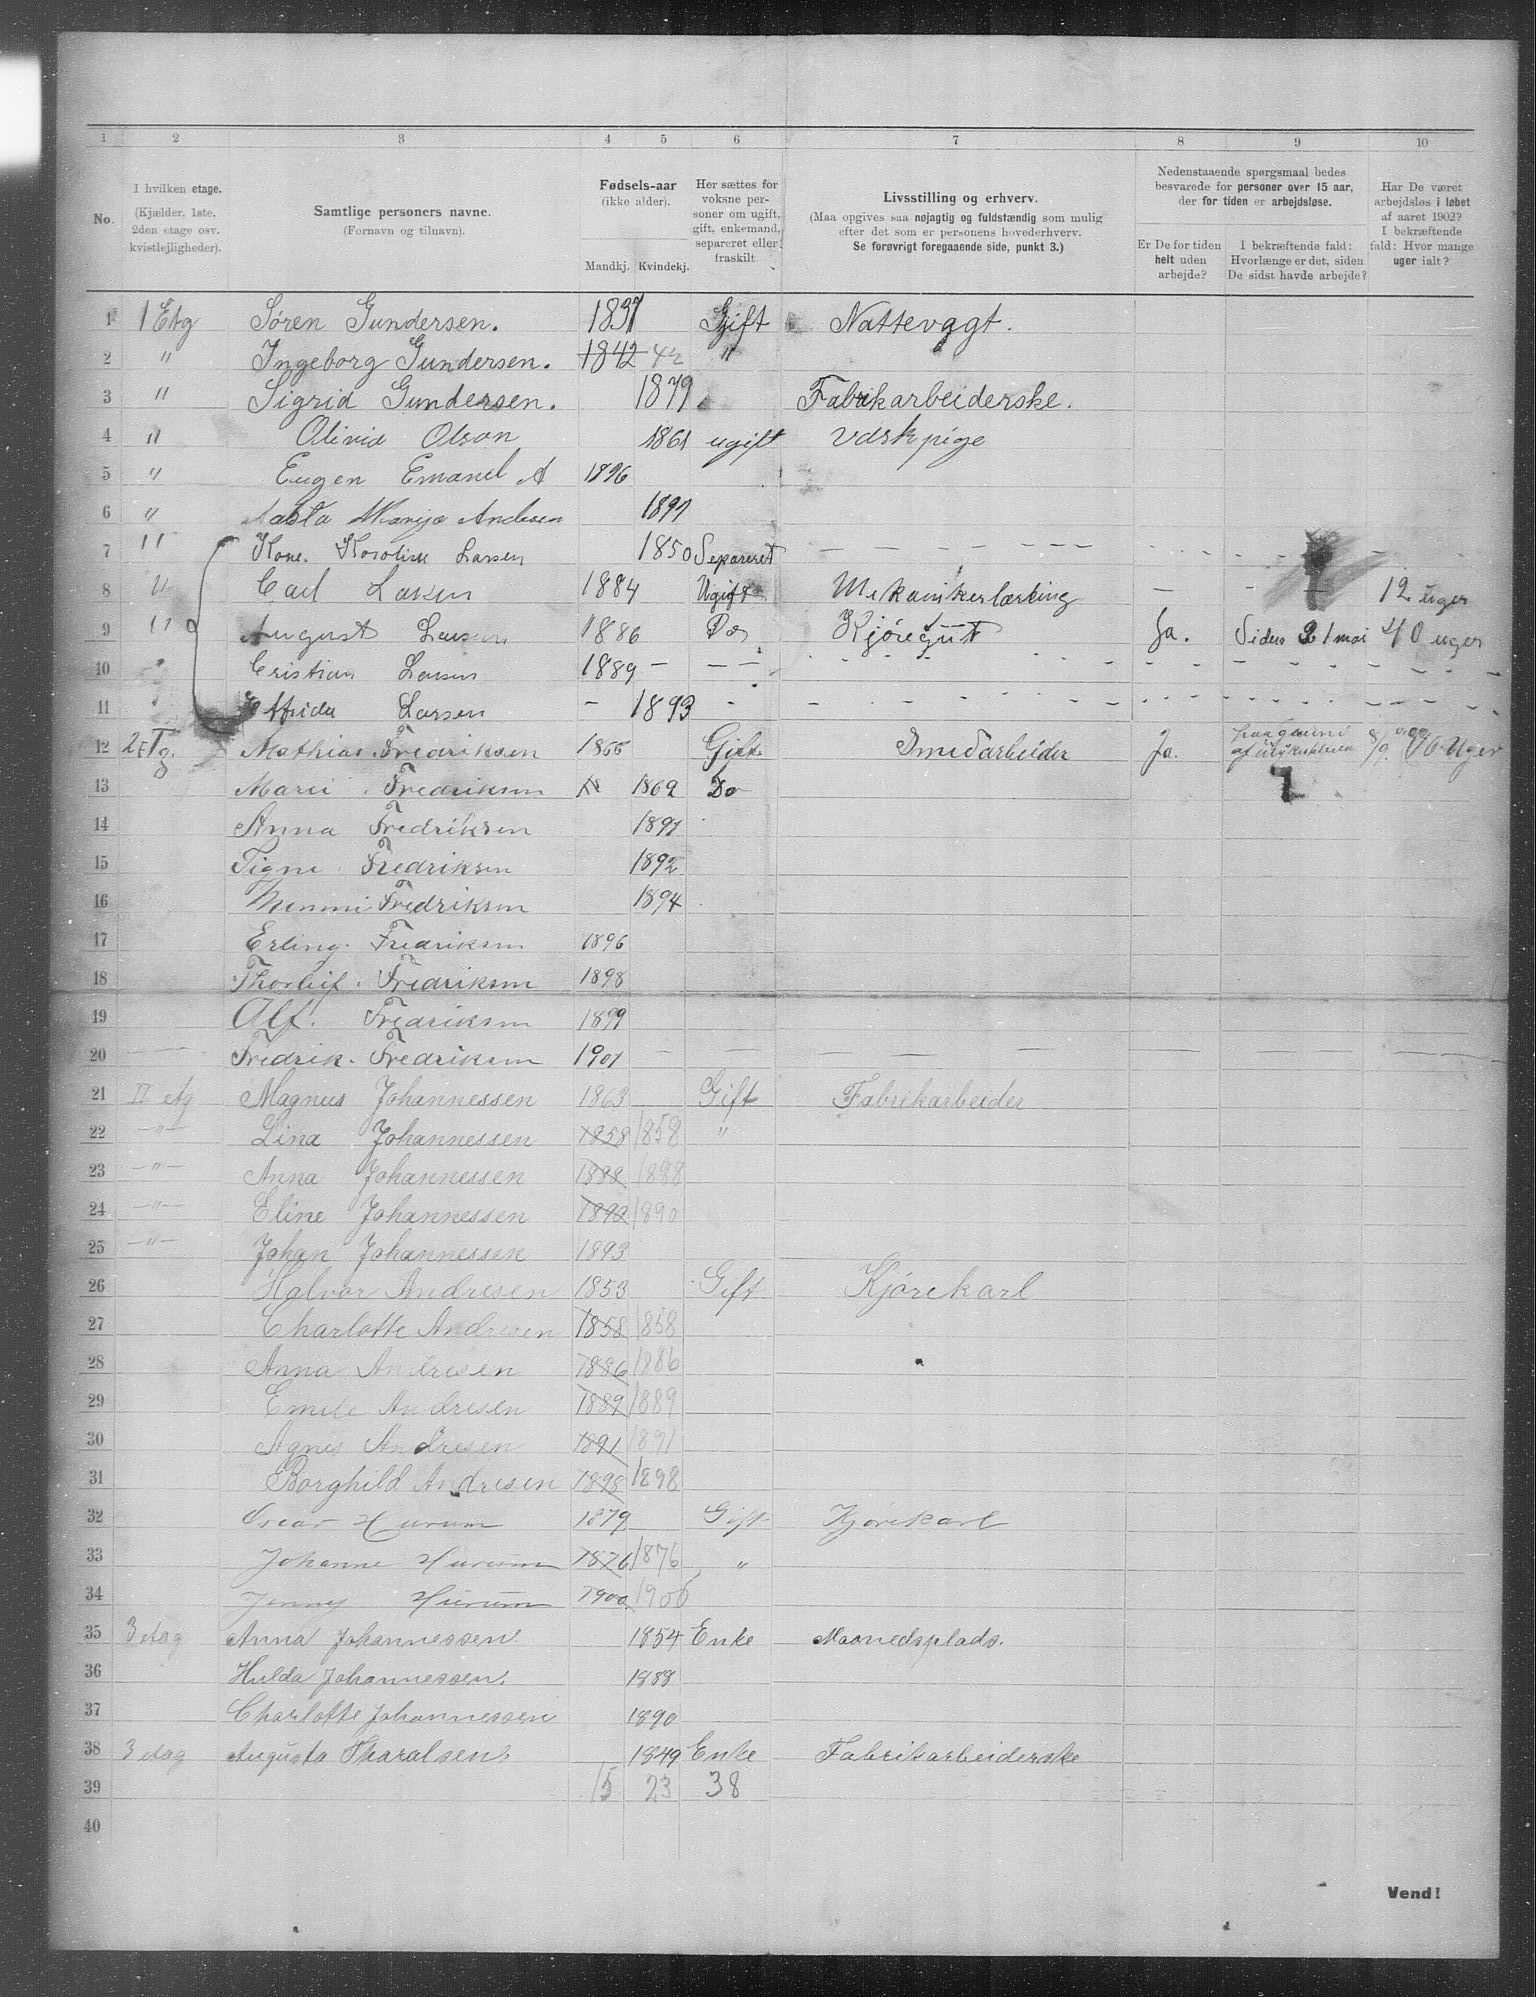 1 2 3 4 5 6 7 8 9 10
No.
I hvilken etage.
(Kjælder, 1ste,
2den etage osv.
kvistlejligheder).
Samtlige personers navne.
(Fornavn og tilnavn).
Fødsels-aar
(ikke alder).
Mandkj. Kvindekj.
Her sættes for
voksne per-
soner om ugift,
gift, enkemand,
separeret eller
fraskilt.
Livsstilling og erhverv.
(Maa opgives saa nøjagtig og fuldstændig som mulig
efter det som er personens hovederhverv.
Se forøvrigt foregaaende side, punkt 3.)
Nedenstaaende spørgsmaal bedes
besvarede for personer over 15 aar,
der for tiden er arbejdsløse.
Er De for tiden
helt uden
arbejde?
I bekræftende fald:
Hvorlænge er det, siden
De sidst havde arbejde?
Har De været
arbejdsløs i løbet
af aaret 1902?
I bekræftende
fald: Hvor mange
uger ialt?
1 1 Etg Søren Gundersen. 1837 Gift Nattevagt.
2 " Ingeborg Gundersen. 1842 42 "
3 " Sigrid Gundersen. 1879 Fabrikarbeiderske.
4 " Olivia Olson 1861 ugift Vdskpige
5 " Eugen Emanel A 1896
6 " Aasta Marije Andersen 1897
7 " Kone. Karoline Larsen 1850 Separeret
8 " Carl Larsen 1884 Ugift Mekanikerlærling 12 uger
9 " August Larsen 1886 Do Kjøregut Ja. Siden 31 mai 40 uger
10 " Cristian Larsen 1889
11 " Alfrida Larsen 1893
12 2 Etg. Mathias Fredriksen 1866 Gift Smedarbeider Ja. 8/9. 16 Uger
13 Marii Fredriksen 18 1869 Do
14 Anna Fredriksen 1891
15 Signe Fredriksen 1892
16 Mimmi Fredriksen 1894
17 Erling Fredriksen 1896
18 Thorleif Fredriksen 1898
19 Alf. Fredriksen 1899
20 Fredrik. Fredriksen 1901
21 II etg Magnus Johannessen 1863 Gift Fabrikarbeider
22 " Lina Johannessen 1858 1858 "
23 " Anna Johannessen 1888 1888
24 " Eline Johannessen 1892 1890
25 " Johan Johannessen 1893
26 Halvor Andresen 1853 Gift Kjørekarl
27 Charlotte Andresen 1858 1858
28 Anna Andresen 1886 1886
29 Emile Andresen 1889 1889
30 Agnes Andresen 1891 1891
31 Borghild Andresen 1898 1898
32 Oscar Hurum 1879 Gift Kjørekarl
33 Johanne Hurum 1876 1876 "
34 Jenny Hurum 1900 1900
35 3 etag Anna Johannessen. 1854 Enke Maanedsplads.
36 Hulda Johannessen. 1888
37 Charlotte Johannessen 1890
38 3 etag Augusta Tharalsen. 1849 Enke Fabrikarbeiderske
39 15 23 38
40
Vend!